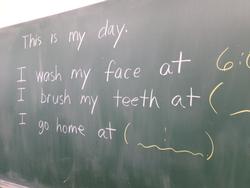 This is my day.
I wash my face at 6:
I brush my teeth at (
I go home at ( : )